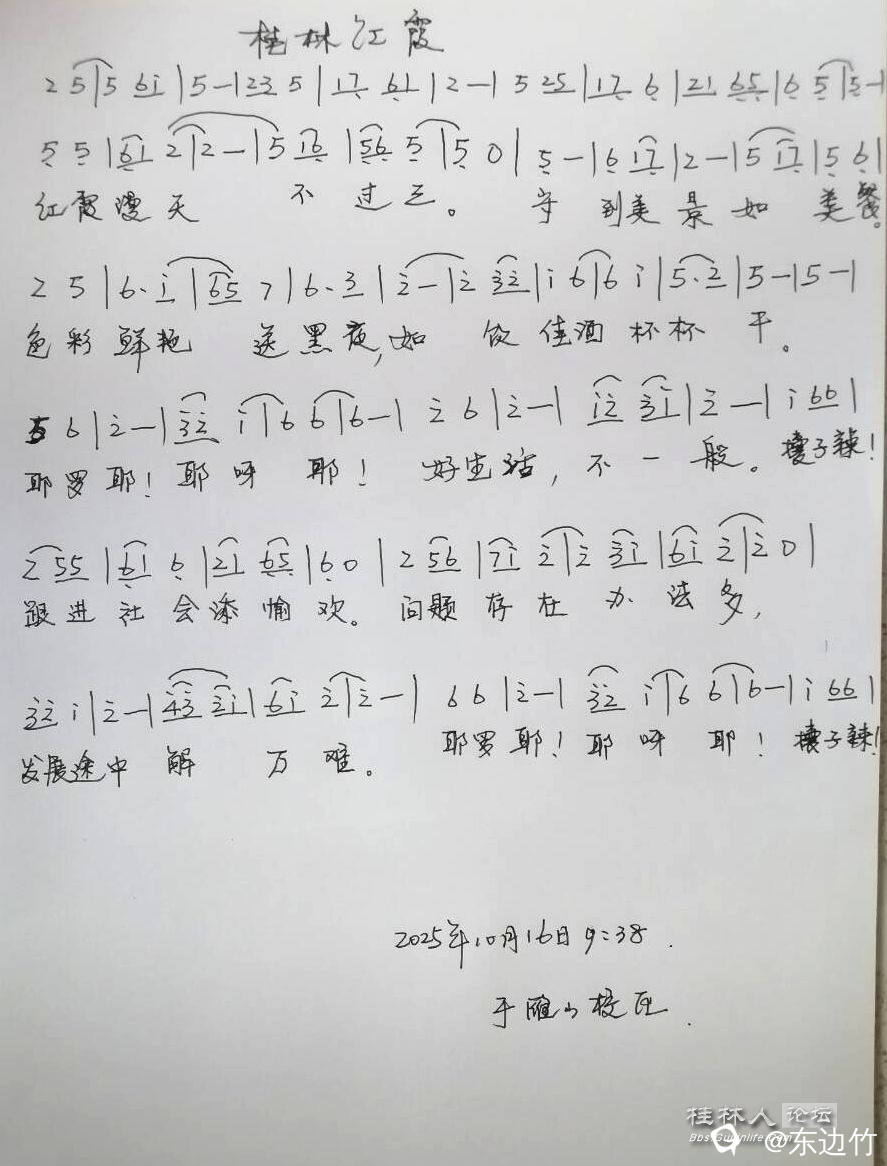 桂林红霞
2 5|5 61|5-|23 5|17 61|2-|5 25|17 6|21 65|6 5|5-|
5 5|61 2|2-|5 16|56 5|5 0|5-|6 17|2-|5 17|5 6|
红霞漫天 不过三。守到美景如美餐。
2 5|6. i|65 7|6. 3|2-|2 32|i 6|6 i|5. 2|5-|5-|
色彩鲜艳 送黑夜,如饮佳酒杯杯干。
5 6|2-|32 i|6 6|6-|2 6|2-|i2 3i|2-|i 66|
耶罗耶!耶呀耶!好生活,不一般。子辣!
2 55|61 6|21 65|6 0|2 56|7i 2|2 3i|6i 2|2 0|
跟进社会添愉欢。问题存在办法多,
32 i|2-|43 2i|6i 2|2-|6 6|2-|32 i|6 6|6-|i 66|
发展途中解万难。耶罗耶!耶呀耶!子辣!
2025年10月16日9:38.
于雁山校区.
桂林人论坛
Bbs.Guilinlife.com
@东边竹